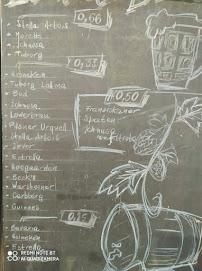 0,66
- Stella Artois
- Moretti
- Ichnusa
- Tuborg
0,33
- Heineken
- Tuborg
- Bud
- Ichnusa
- Pilsner Urquell
- Stella Artois
- Estrella
- Hoegaarden
- Beck's
- Warsteiner
- Carlsberg
- Guinness
0,50
Franziskaner
Spaten
Ichnusa
non filtrata
- Bavaria
- Heineken
- Estrella
REDMI NOTE 8T
AI QUAD CAMERA